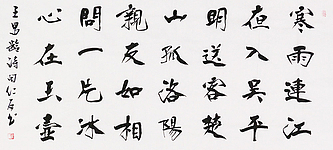 寒雨連江
夜入吳平
明送客楚
山孤洛陽
親友如相
問一片冰
心在玉壺
王昌齡詩